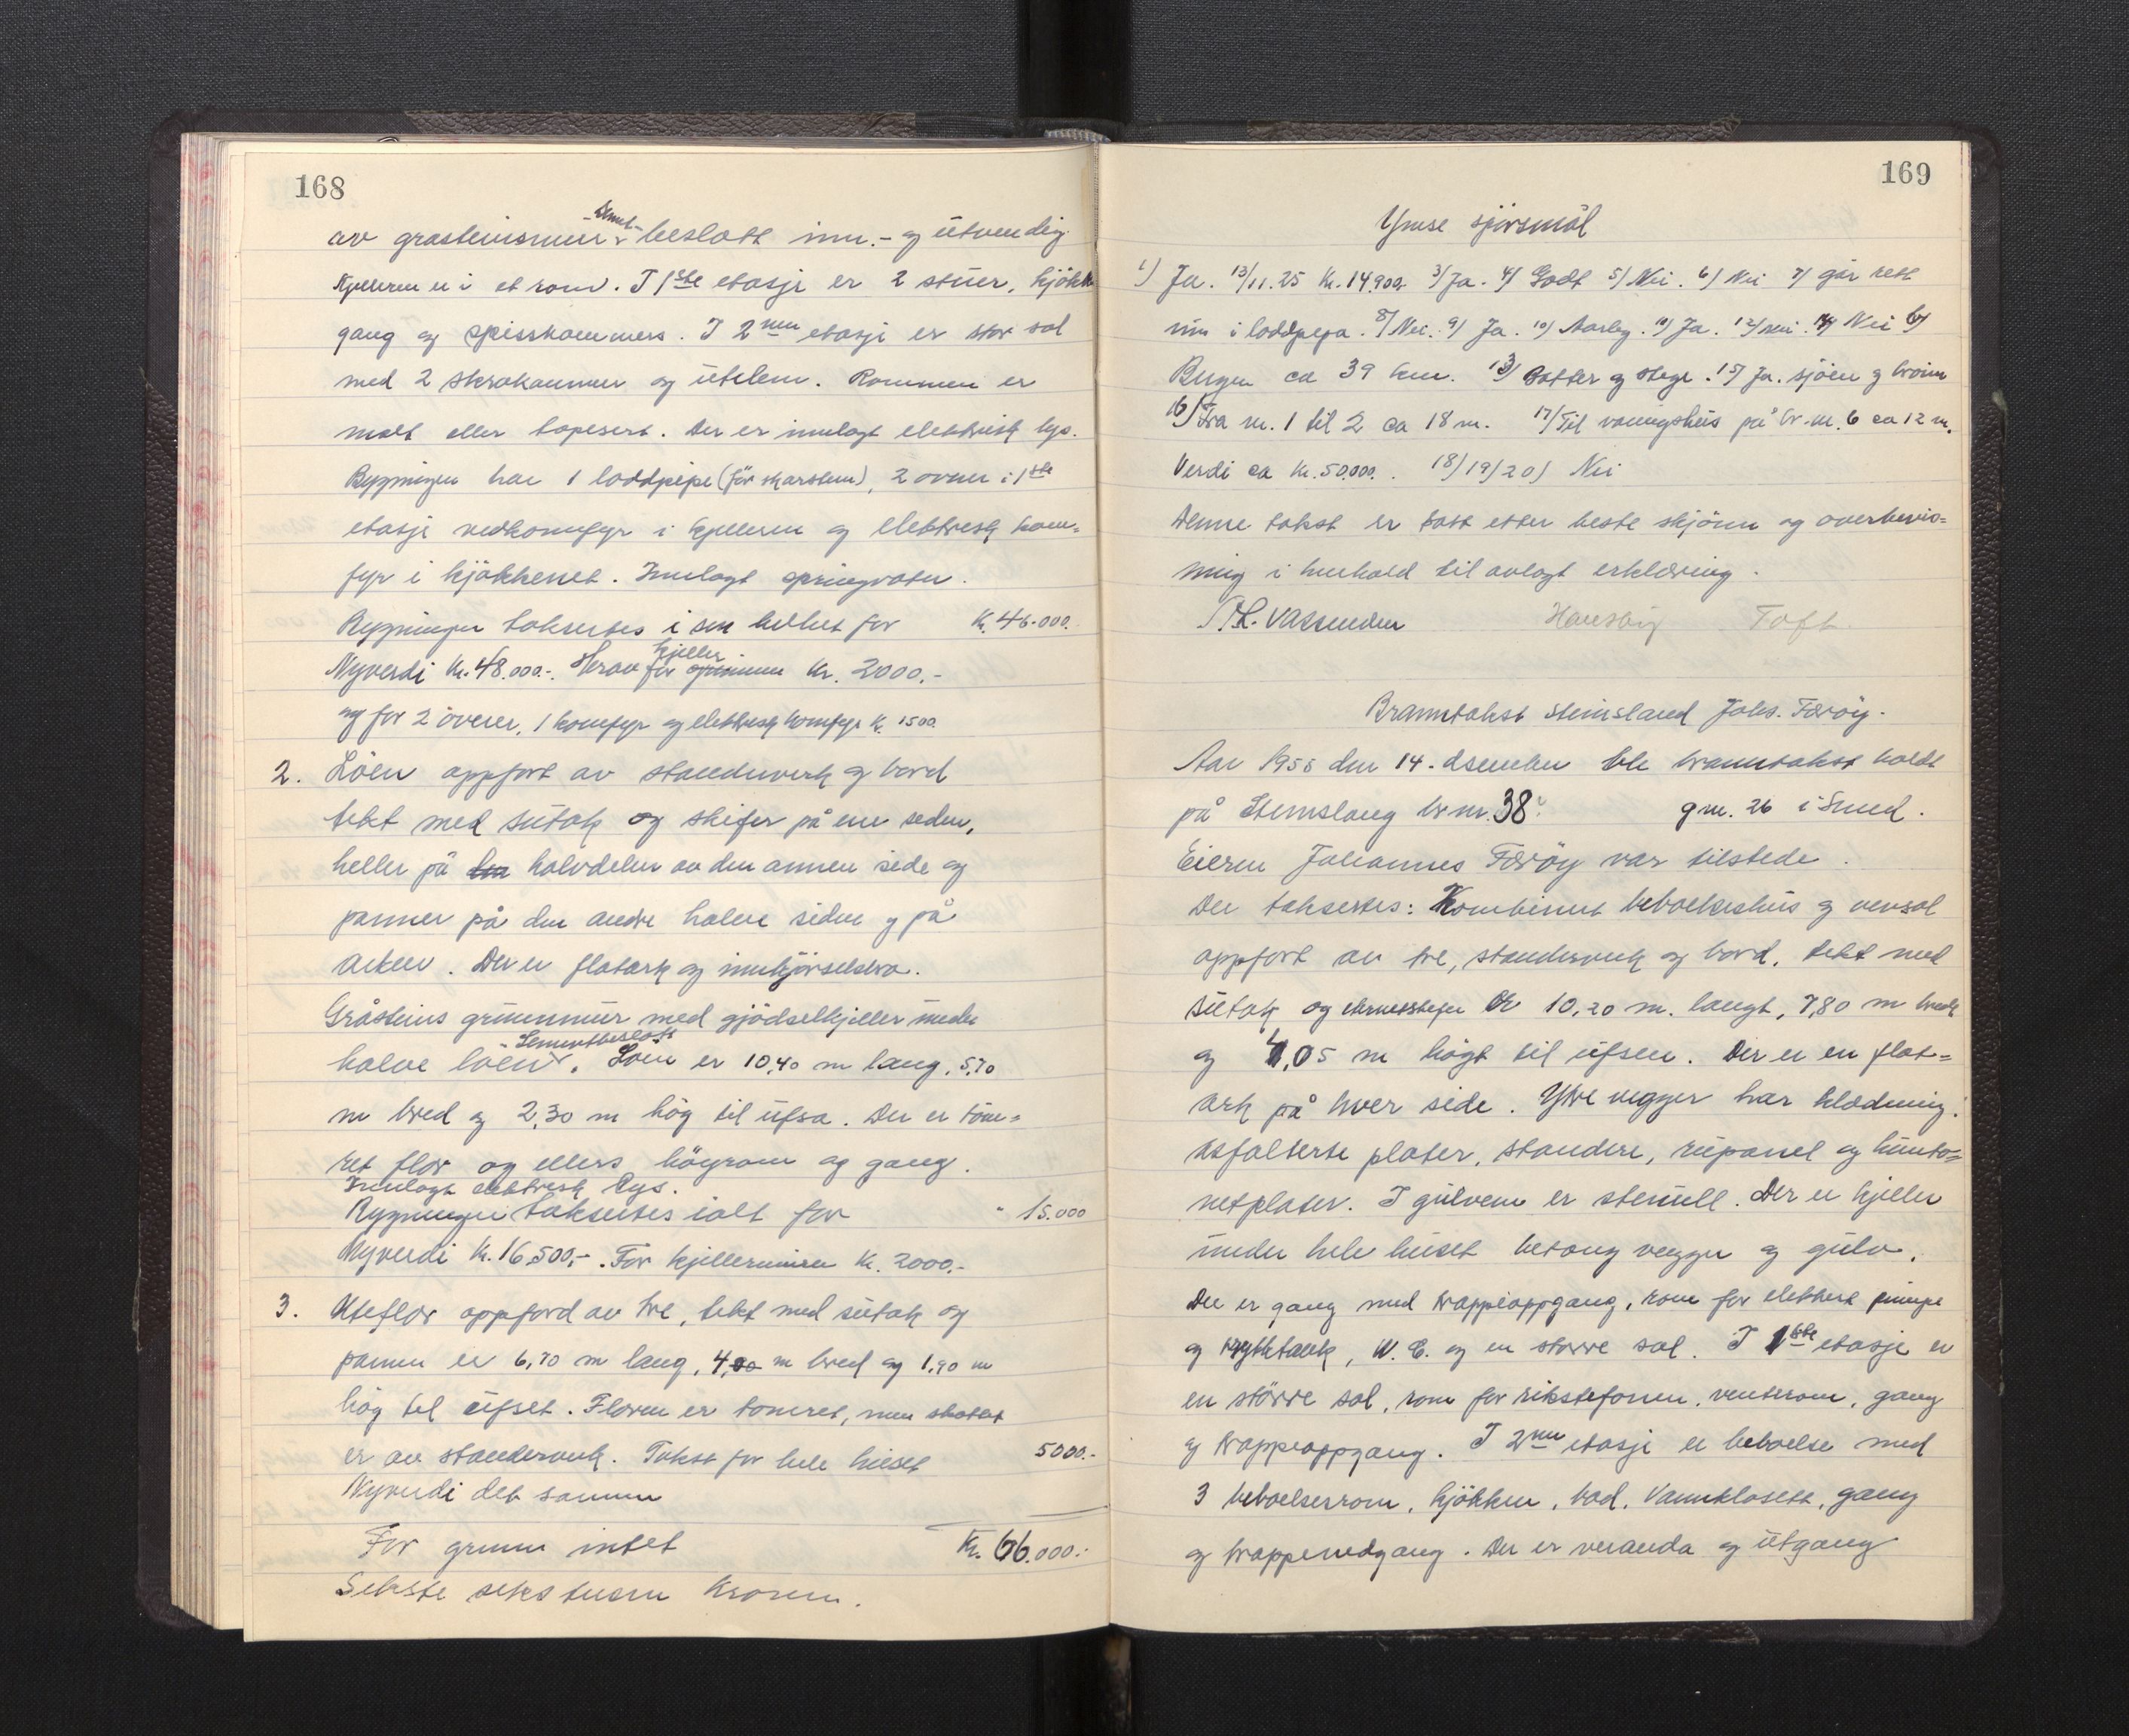 168
av grasteinsmur sement- beslått inn.- og utvendig
Kjelleren er i et rom. I 1ste etasje er 2 stuer, kjökk
gang og spisskammers. I 2nen etasje er stor sal
med 2 skrakammer og utelem. Rommene er
malt eller tapesert. Der er innlagt elektrisk lys.
Bygningen har 1 loddpipe (för skarstein), 2 ovner i 1ste
etasje vedkomfyr i kjelleren og elektrisk kom=
fyr i kjökkenet. Innlagt springvatn.
Bygningen takseres i sin helhet for K. 46.000.
Nyverdi kr. 48.000.-. Herav for kjeller kr. 2000.-
og for 2 ovner, 1 komfyr og elektrisk komfyr K. 1500.
2. Löen oppfört av standerverk og bord
tekt med sutak og skifer på ene siden,
heller på halvdelen av den annen side og
panner på den andre halve siden og på
arken. Der er flatark og innkjörselsbro.
Gråsteins grunnmur med gjödselkjeller under
halve löen Sementbeslått. Löen er 10,40 m lang, 5,70
m bred og 2,30 m hög til ufsa. Der er töm=
ret flor og ellers höyrom og gang.
Innlagt elektrisk lys.
Bygningen takseres ialt for " 15.000
Nyverdi K. 16.500,-. For kjellermuren K. 2000.-
3. Uteflor oppförd av tre, tekt med sutak og
panner er 6,70 m lang, 4,00 m bred og 1,90 m
hög til ufset. Floren er tomret, men skotet
er av standerverk. Takst for hele huset 5000.-
Nyverdi det samme
For grunn intet Kr. 66.000.-
Sekste seks tusen kroner.
169
Ymse spörsmål
1) Ja. 13/11.25 kr. 14.900. 3/ Ja. 4/ Godt 5/ Nei. 6/ Nei 7/ går rett
inn i loddpipa. 8/ Nei. 9/ Ja. 10/ Aarleg. 11/ Ja. 12/ nei. 14/ Nei 6/
Bergen ca 39 km. 13/ Bötter og stege. 15/ Ja. sjöen og brönn
16/ Fra nr. 1 til 2 ca 18 m. 17/ Til vaningshus på br. nr. 6 ca 12 m.
Verdi ca kr. 50.000. 18/19/20/ Nei
Denne takst er tatt etter beste skjönn og overbevis=
ning i henhold til avlagt erklæring.
H. Vassenden Hausöy Toft.
Branntakst Steinsland Johs. Færöy.
Aar 1955 den 14. desember ble branntakst holdt
på Steinsland br nr. 38. g nr. 26 i Sund.
Eieren Johannes Færöy var tilstede.
Der takseres: Kombinert beboelseshus og vevsal
oppfört av tre, standerverk og bord, tekt med
sutak og skifer Er 10,20 m. langt, 7,80 m bredt
og 4,05 m högt til ufsen. Der er en flat=
ark på hver side. Ytre vegger har klædning,
asfalterte plater, standere, rupanel og hunto=
netplater. I gulvene er steinull. Der er kjeller
under hele huset betong vegger og gulv.
Der er gang med trappeoppgang, rom for elektrisk pumpe
og trykktank, W. C. og en större sal. I 1ste etasje er
en större sal, rom for rikstefonen, venterom, gang
og trappeoppgang. I 2nen etasje er beboelse med
3 beboelsesrom, kjökken, bad, Vannklosett, gang
og trappenedgang. Der er veranda og utgang